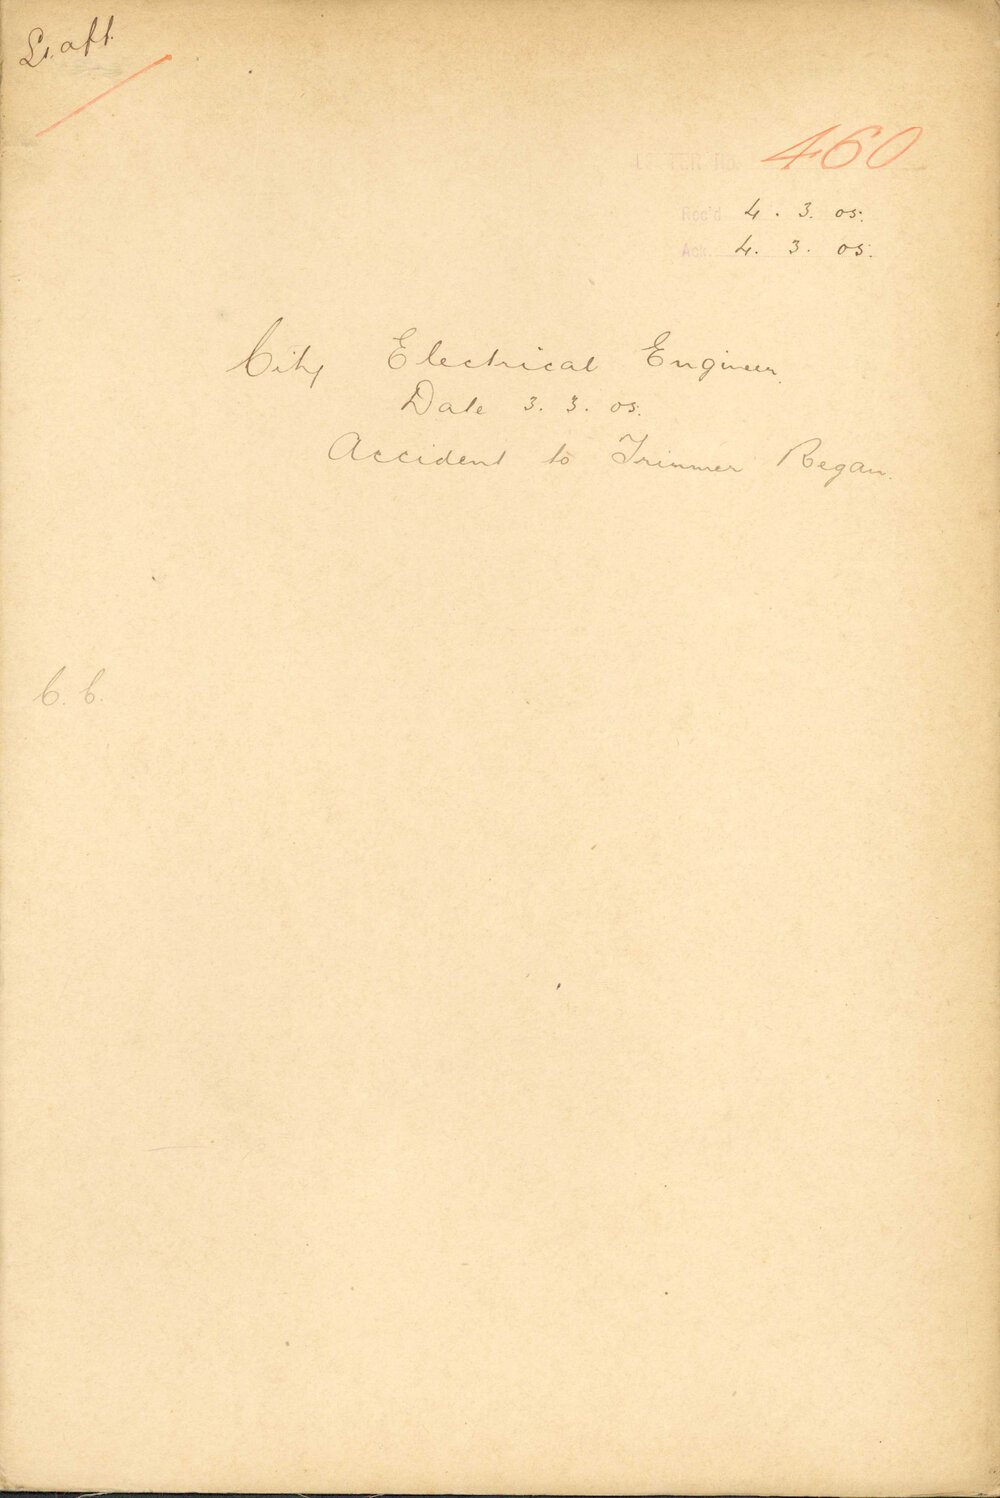 Lt. off.
LETTER No. 460
Rec'd 4. 3. 05.
Ack. 4. 3. 05.
City Electrical Engineer.
Date 3. 3. 05.
Accident to Trimmer Regan.
C. C.